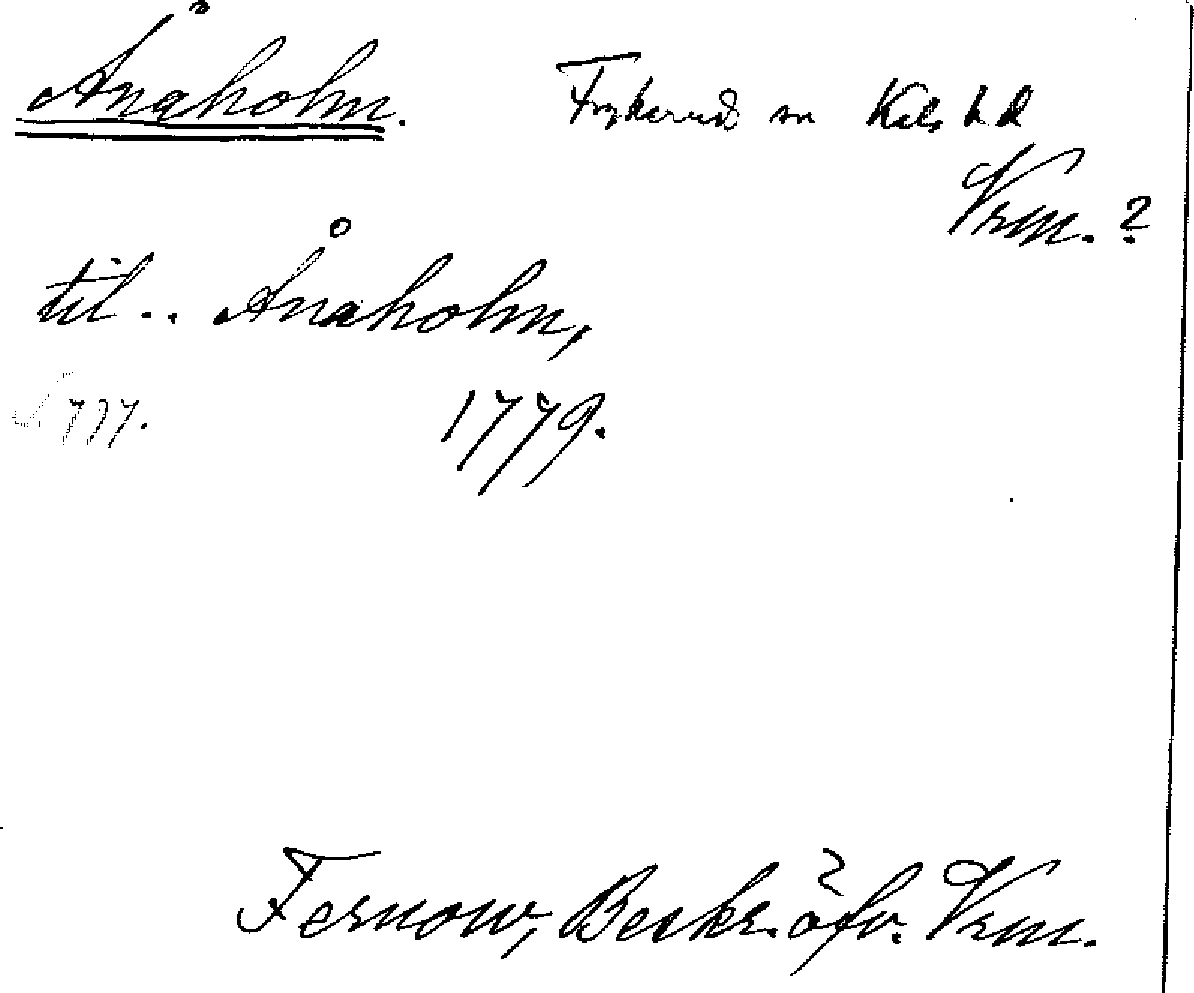 Ånaholm. Frykerud sn Kils hd
Vrm. ?
til.. Ånaholm,
1779.
Fernow, Beskr. öfv. Vrm.